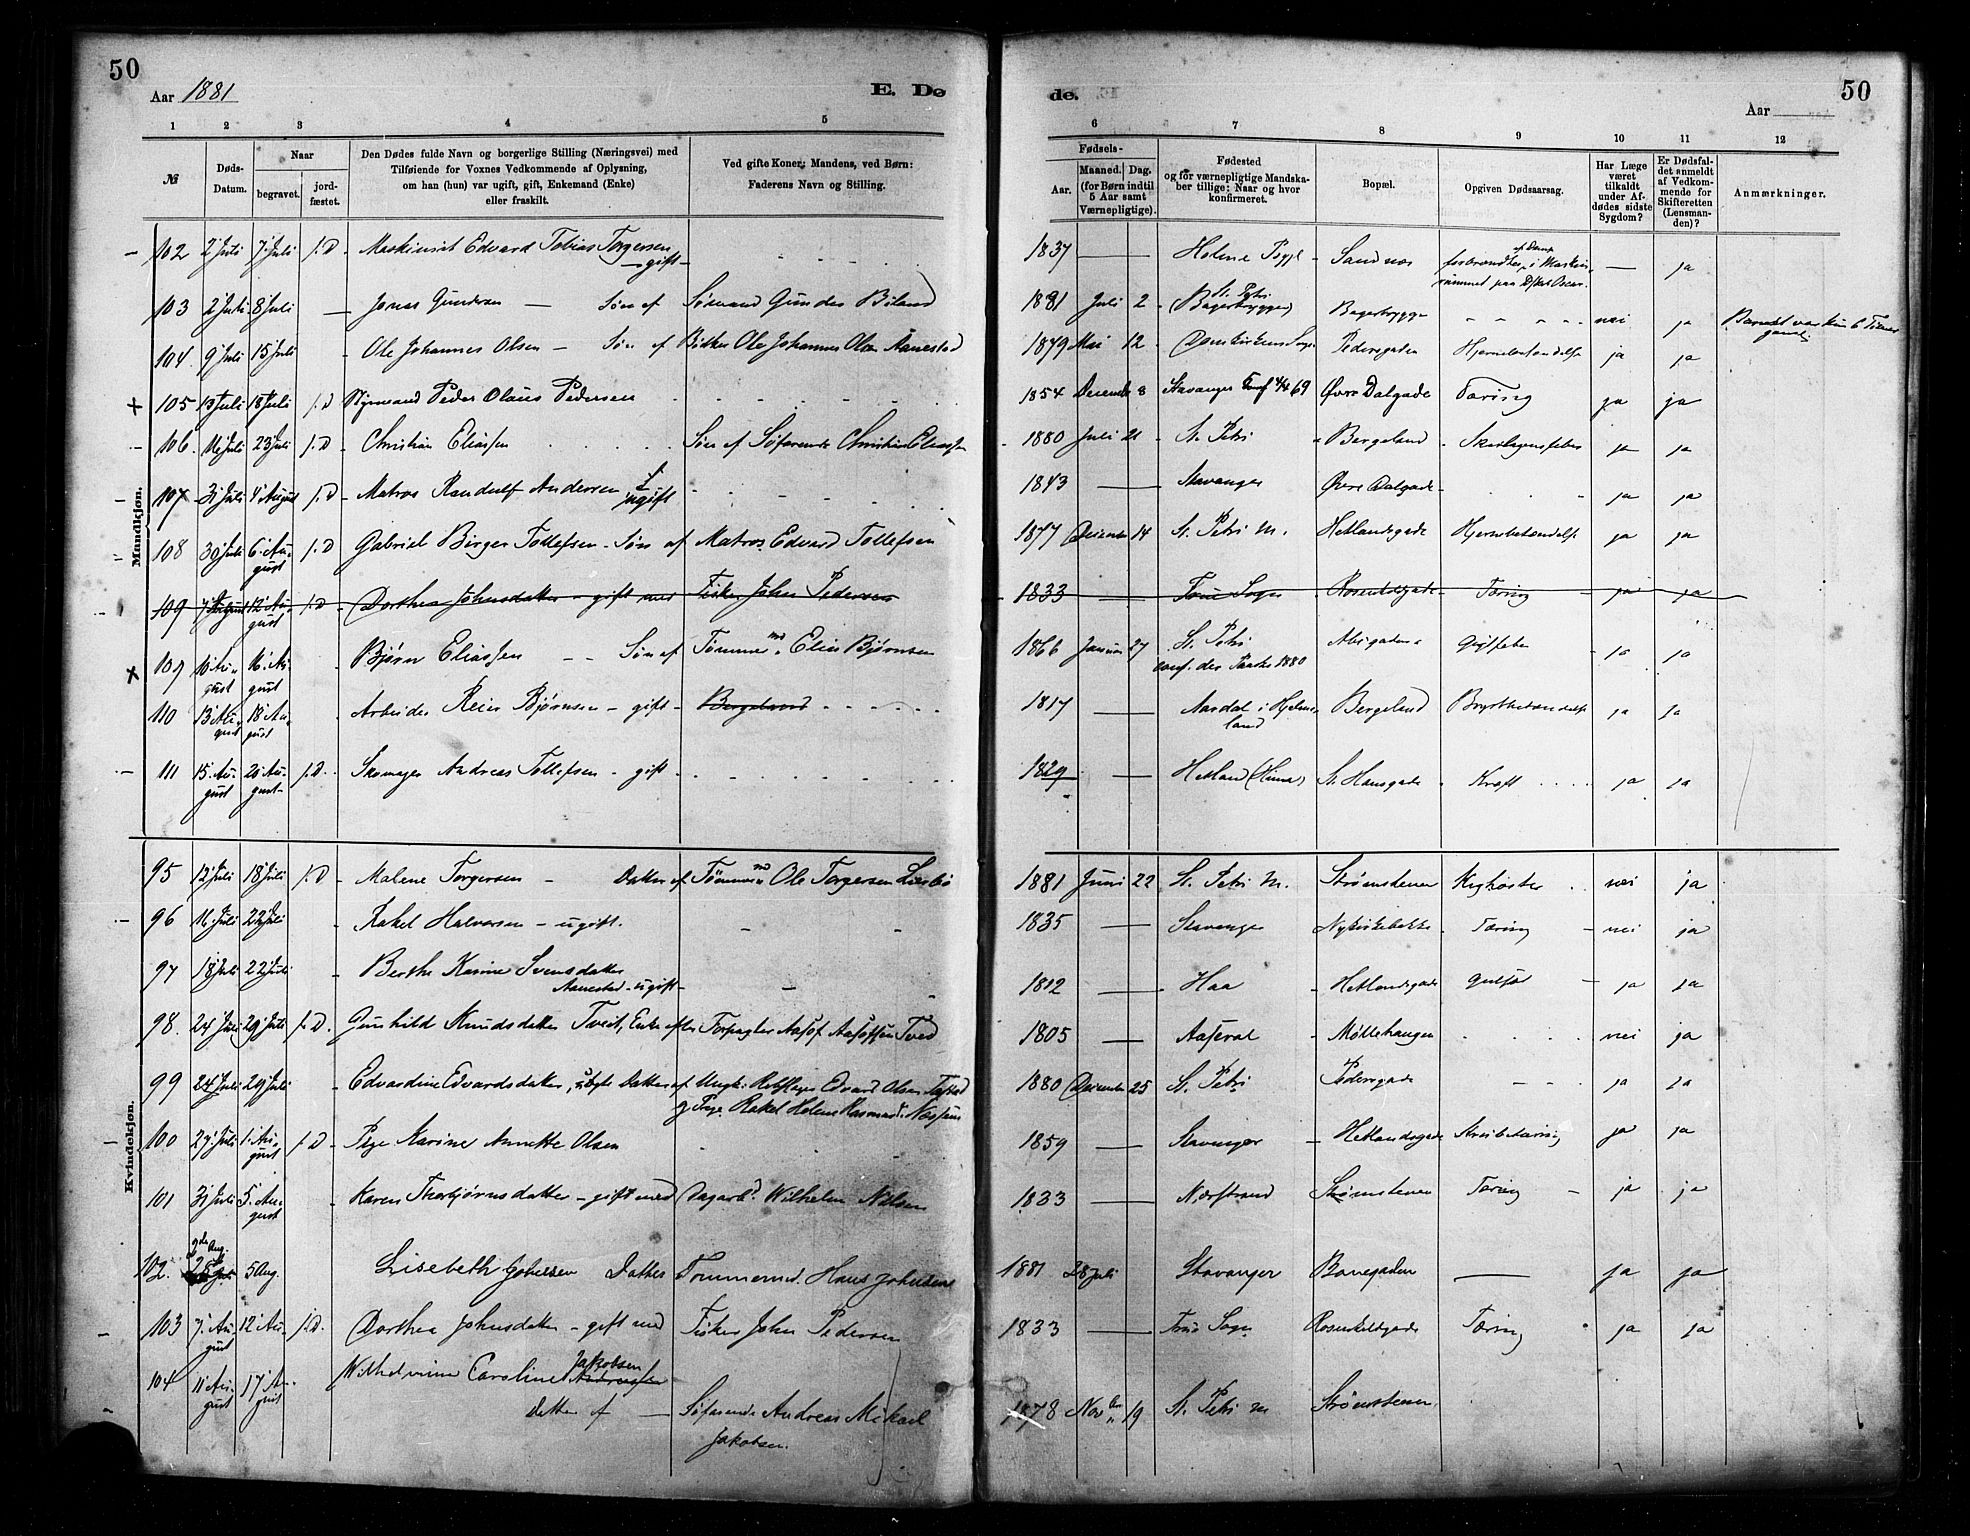 50
Aar 1881
E. Dø
1 2 3 4 5
№
Døds-Datum.
Naar
begravet.
jord-fæstet.
Den Dødes fulde Navn og borgerlige Stilling (Næringsvei) med
Tilføiende for Voxnes Vedkommende af Oplysning,
om han (hun) var ugift, gift, Enkemand (Enke)
eller fraskilt.
Ved gifte Koner: Mandens, ved Børn:
Faderens Navn og Stilling.
de.
50
Aar
6 7 8 9 10 11 12
Fødsels-
Aar.
Maaned. Dag.
(for Børn indtil
5 Aar samt
Værnepligtige).
Fødested
og for værnepligtige Mandska-
ber tillige: Naar og hvor
konfirmeret.
Bopæl.
Opgiven Dødsaarsag.
Har Læge
været
tilkaldt
under Af-
dødes sidste
Sygdom?
Er Dødsfal-
det anmeldt
af Vedkom-
mende for
Skifteretten
(Lensman-
den)?
Anmærkninger.
Mandkjøn.
102 2 Juli 7 Juli j.D Maskinist Edvard Tobias Torgersen gift 1837 Sandnæs forbrændtes af Damp i Maskin- rummet paa ja
103 2 Juli 8 Juli Jonas Gundersen Søn af Gunder Biland 1881 Juli 2 St. Petri (Bagerbryggen) Bagerbrygge nei ja Barnet var kun 6 Timer gamel
104. 9 Juli 15 Juli Ole Johannes Olsen Søn af Ole Johannes Olsen Aanestad 1879 Mai 12 Domkirkens Sogn Pedersgaden Hjernebetændelse ja ja
+ 105 13 Juli 18 Juli j.D Styrmand Peder Olaus Pedersen 1854 December 8 Stavanger 69 Øvre Dalgade Tæring ja ja
106. 16 Juli 23 Juli j.D Christian Eliassen Søn af Søfarende Christian Eliassen 1880 Juli 21 St. Petri Bergeland Skarlagensfeber ja ja
107 31 Juli 4 August j.D Matros Randulf Andersen ugift 1843 Stavanger Øvre Dalgade ja ja
108 30 Juli 6. August j.D Gabriel Birger Tollefsen Søn af Matros Edvard Tollefsen 1877 December 14 St. Petri M. Hetlandsgade Hjernebetændelse ja ja
109 7 August 12 August j.D Dorthea Johnsdatter gift med Fisker John Pedersen 1833 Sogn Rosenkildgade Tæring ja ja
+ 109 10 August 16. August Bjørn Eliassen Søn af Tømmermd. Elias Bjørnsen 1866 Januar 27 St. Petri conf. der Paaske 1880 Gigfeber ja ja
110 13 August 18 August Arbeider Reier Bjørnsen gift Bergeland 1817 Aardal i Hjelmeland Bergeland Brystbetændelse ja ja
111 15. August 20 August j.D. Skomager Andreas Tollefsen gift 1829 Hetland (Hinna) St. Hansgade Kræft ja ja
Kvindekjøn.
95 12 Juli 18 Juli j.D Malene Torgersen Datter af Tømmermd. Ole Torgersen 1881 Juni 22 St. Petri M. Strømstenen Kighoste nei ja
96 16. Juli 22 Juli Rakel Halvorsen ugift. 1835 Stavanger Nykirkebakke Tæring nei ja
97 18 Juli 22 Juli Berthe Karine Svensdatter Aanestad ugift 1812 Haa Hetlandsgade Gulsot ja ja
98. 24 Juli 29 Juli j.D. Gunhild Knudsdatter Tveit, Enke efter Forpagter 1805 Aaseral Møllehaugen nei ja
99 24 Juli 29 Juli Edvardine Edvardsdatter, uægte Datter af Ungk. Edvard Olsen og Pige Rakel Helene Rasmusd. 1880 December 25 St. Petri Pedersgade ja ja
100 27. Juli 1. August j.D Pige Karine Annette Olsen 1859 Stavanger Hetlandsgade Strubetæring ja ja
101 31 Juli 5. August Karen Thorbjørnsdatter gift med Dagarbd. Wilhelm Nilsen 1833 Nærstrand Strømstenen Tæring ja ja
102. 2den Aug. 5 Aug. Lisebeth Johnsen Datter Tømmermd. Hans Johnsen 1881 28 Juli Stavanger Banegaden ja ja
103 7. August 12 August j.D. Dorthea Johnsdatter gift med Fisker John Pedersen 1833 Sogn Rosenkildgade Tæring ja ja
104 11 August 17 August Wilhelmine Caroline Jakobsen
Datter af Søfarende Andreas Mikael Jakobsen. 1878 Novber 19 St. Petri M Strømstenen